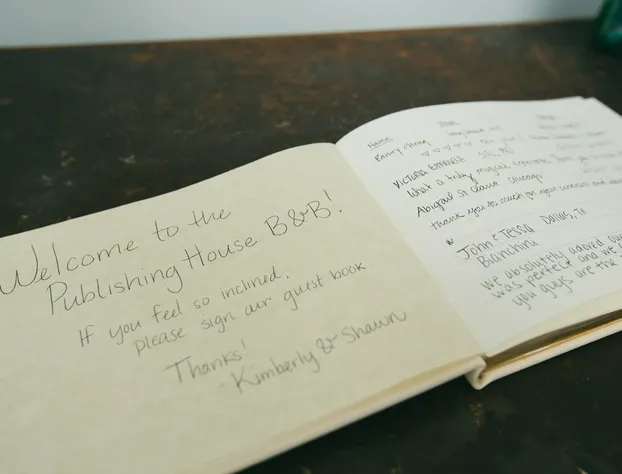 Welcome to the
Publishing House B&B!
If you feel so inclined,
please sign our guest book
Thanks!
-Kimberly & Shawn
Name
♡ ♡ ♡ ♡ ♡
What a truly magical
Abigail St. Claire Chicago
thank you so much for your
John & Tessa Dallas, Tx
Bianchini
we absolutely adored our
was perfect and we
you guys are the